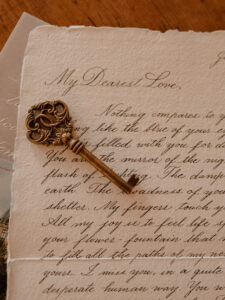 My Dearest Love,
Nothing compares to y
ing like the blue of your ey
is filled with you for d
You are the mirror of the nig
flash of ting. The damp
earth. The broadness of you
shelter. My fingers touch y
All my joy is to feel life s
your flower-fountain that
to fill all the paths of my ne
yours. I miss you, in a quite
desperate human way. You w